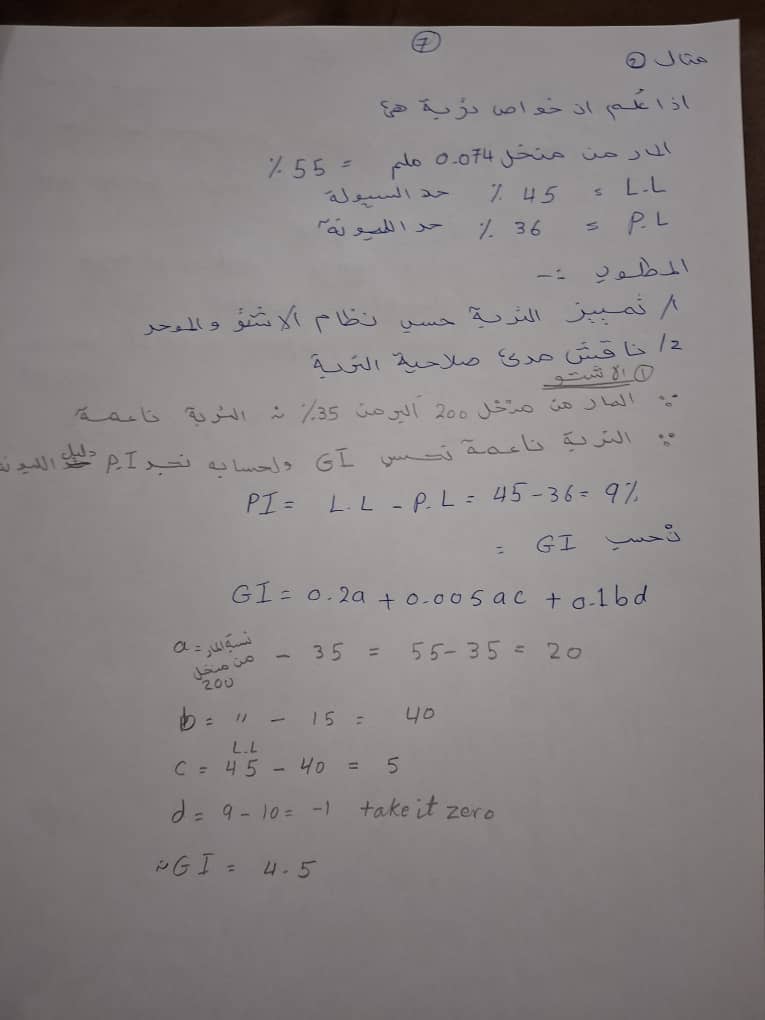 7
مثال 2
اذا علم ان خواص تربة هي
المار من منخل 0.074 ملم = 55 %
L.L = 45 % حد السيولة
P.L = 36 % حد اللدونة
المطلوب :-
1/ تمييز التربة حسب نظام الاشتو والموحد
2/ ناقش مدى صلاحية التربة
1 الاشتو
∵ المار من منخل 200 اكبر من 35% ∴ التربة ناعمة
∵ التربة ناعمة نحسب GI ولحسابه نجد P.I دليل اللدونة
PI = L.L - P.L = 45 - 36 = 9%
نحسب GI =
GI = 0.2a + 0.005ac + 0.1bd
a = نسبة المار من منخل 200 - 35 = 55 - 35 = 20
b = " - 15 = 40
L.L
c = 45 - 40 = 5
d = 9 - 10 = -1 take it zero
∴ GI = 4.5